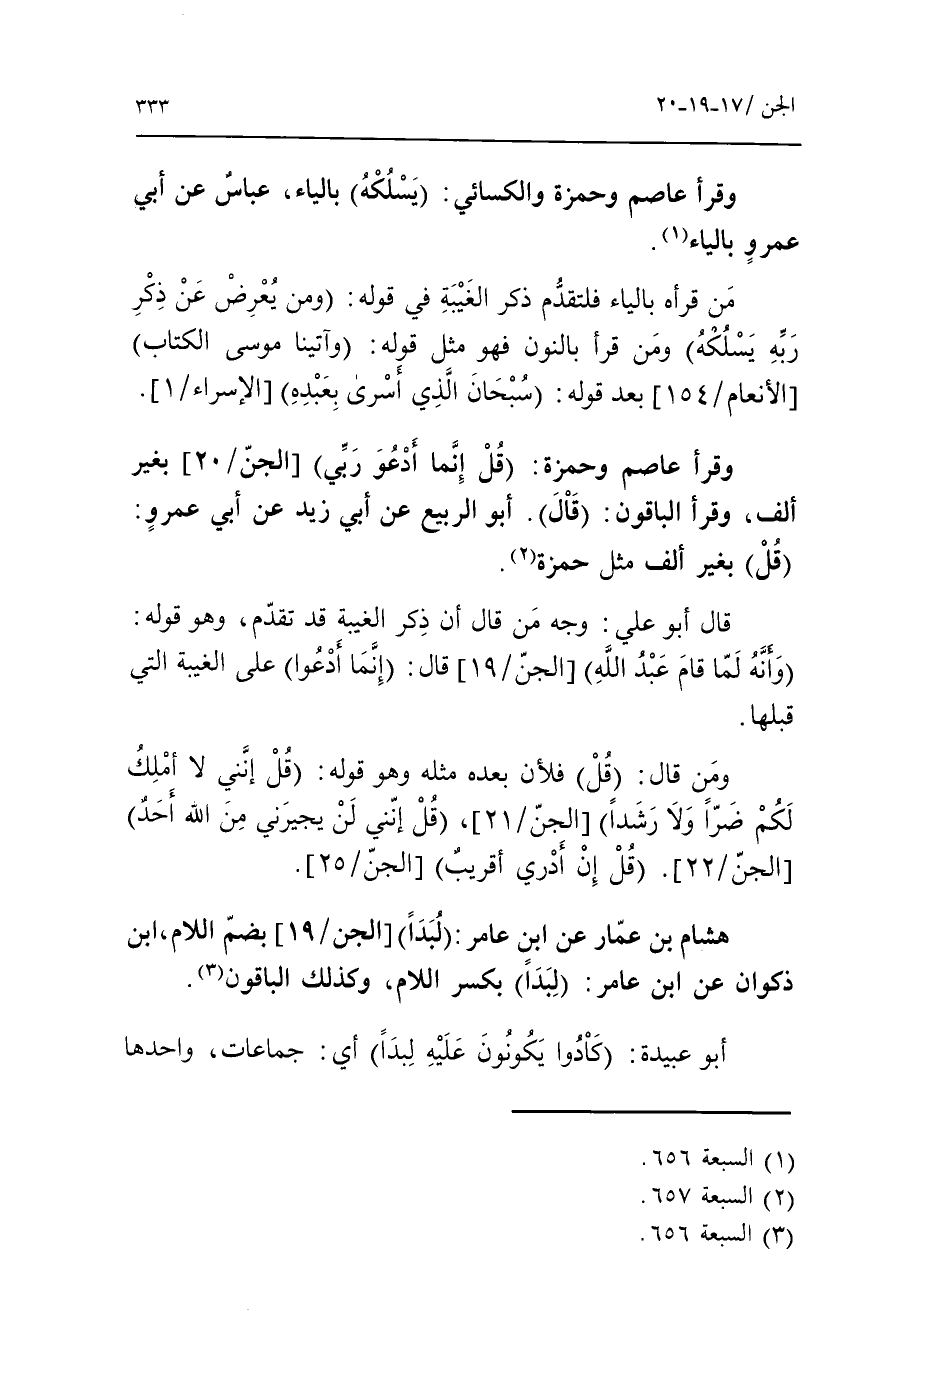 الجن /١٧-١٩-٢٠ ٣٣٣
وقرأ عاصم وحمزة والكسائي: (يَسْلُكْهُ) بالياء، عباسٌ عن أبي
عمروٍ بالياء(١).
مَن قرأه بالياء فلتقدُّم ذكر الغَيْبَةِ في قوله: (ومن يُعْرِضْ عَنْ ذِكْرِ
رَبِّهِ يَسْلُكْهُ) ومَن قرأ بالنون فهو مثل قوله: (وآتينا موسى الكتاب)
[الأنعام/١٥٤] بعد قوله: (سُبْحَانَ الَّذِي أَسْرىٰ بِعَبْدِهِ) [الإسراء/١].
وقرأ عاصم وحمزة: (قُلْ إنَّما أَدْعُوَ رَبِّي) [الجنّ/٢٠] بغير
ألف، وقرأ الباقون: (قَاْلَ). أبو الربيع عن أبي زيد عن أبي عمروٍ:
(قُلْ) بغير ألف مثل حمزة(٢).
قال أبو علي: وجه مَن قال أن ذِكر الغيبة قد تقدّم، وهو قوله:
(وَأَنَّهُ لَمّا قامَ عَبْدُ اللَّهِ) [الجنّ/١٩] قال: (إنَّمَا أَدْعُوا) على الغيبة التي
قبلها.
ومَن قال: (قُلْ) فلأن بعده مثله وهو قوله: (قُلْ إنَّني لا أمْلِكُ
لَكُمْ ضَرّاً وَلَا رَشَداً) [الجنّ/٢١]، (قُلْ إنّني لَنْ يجيرَني مِنَ الله أَحَدٌ)
[الجنّ/٢٢]. (قُلْ إنْ أَدْري أقريبٌ) [الجنّ/٢٥].
هشام بن عمّار عن ابن عامر:(لُبَدَاً)[الجن/١٩] بضمّ اللام،ابن
ذكوان عن ابن عامر: (لِبَدَاً) بكسر اللام، وكذلك الباقون(٣).
أبو عبيدة: (كَاْدُوا يَكُونُونَ عَلَيْهِ لِبدَاً) أي: جماعات، واحدها
(١) السبعة ٦٥٦.
(٢) السبعة ٦٥٧.
(٣) السبعة ٦٥٦.